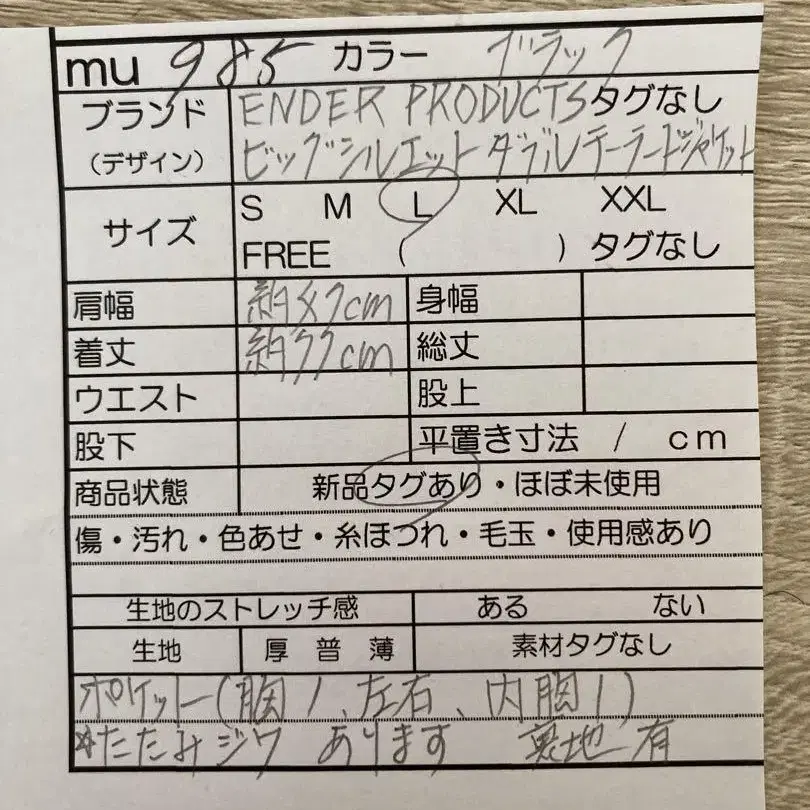 mu 985 カラー ブラック
ブランド ENDER PRODUCTS タグなし
(デザイン) ビッグシルエット ダブルテーラードジャケット
サイズ S M L XL XXL
FREE ( ) タグなし
肩幅 約47cm 身幅
着丈 約77cm 総丈
ウエスト 股上
股下 平置き寸法 / cm
商品状態 新品タグあり・ほぼ未使用
傷・汚れ・色あせ・糸ほつれ・毛玉・使用感あり
生地のストレッチ感 ある ない
生地 厚 普 薄 素材タグなし
ポケット(胸1、左右、内胸1)
*たたみジワ あります 裏地有